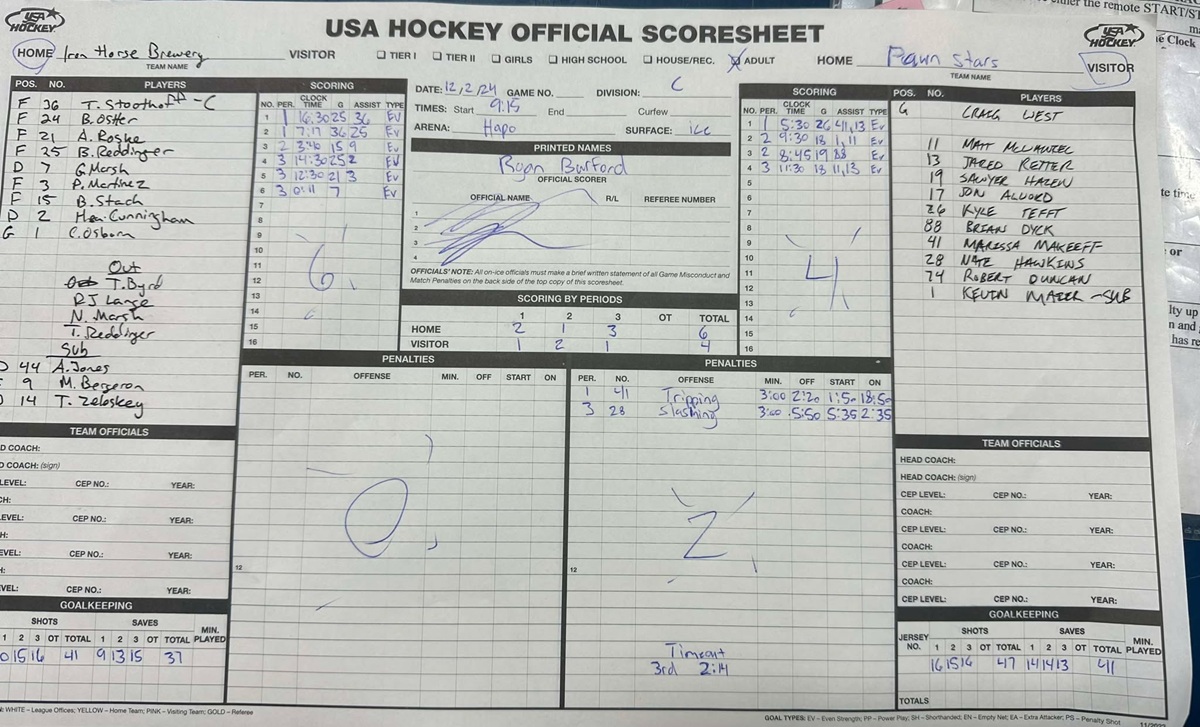 either the remote START/ST
USA HOCKEY
USA HOCKEY OFFICIAL SCORESHEET
USA HOCKEY
HOME Iron Horse Brewery
TEAM NAME
VISITOR ☐ TIER I ☐ TIER II ☐ GIRLS ☐ HIGH SCHOOL ☐ HOUSE/REC. ☒ ADULT HOME Pawn Stars
TEAM NAME
VISITOR
POS. NO. PLAYERS
F 36 T. Stoothoff -C
F 24 B. Oster
F 21 A. Roske
F 25 B. Reddinger
D 7 G. Marsh
F 3 P. Martinez
F 15 B. Stach
D 2 Cunningham
G 1 C. Osborn
Out
T. Byrd
DJ Lange
N. Marsh
T. Reddinger
Sub
D 44 A. Jones
F 9 M. Bergeron
D 14 T. Zeboskey
TEAM OFFICIALS
D COACH:
D COACH: (sign)
LEVEL: CEP NO.: YEAR:
CH:
EVEL: CEP NO.: YEAR:
H:
EVEL: CEP NO.: YEAR:
H:
VEL: CEP NO.: YEAR:
GOALKEEPING
SHOTS SAVES MIN. PLAYED
1 2 3 OT TOTAL 1 2 3 OT TOTAL
0 15 16 41 9 13 15 37
SCORING
NO. PER. CLOCK TIME G ASSIST TYPE
1 1 16:30 25 36 Ev
2 1 7:17 36 25 Ev
3 2 3:40 15 9 Ev
4 3 14:30 25 2 Ev
5 3 12:30 21 3 Ev
6 3 0:11 7 Ev
7
8
9
10
11
12
13
14
15
16
6
DATE: 12/2/24 GAME NO. DIVISION: C
TIMES: Start 9:15 End Curfew
ARENA: Hapo SURFACE: ice
PRINTED NAMES
Ryan Burford
OFFICIAL SCORER
OFFICIAL NAME R/L REFEREE NUMBER
1
2
3
4
OFFICIALS' NOTE: All on-ice officials must make a brief written statement of all Game Misconduct and
Match Penalties on the back side of the top copy of this scoresheet.
SCORING BY PERIODS
1 2 3 OT TOTAL
HOME 2 1 3 6
VISITOR 1 2 1 4
SCORING
NO. PER. CLOCK TIME G ASSIST TYPE
1 1 5:30 26 41,13 Ev
2 2 9:30 18 1,11 Ev
3 2 8:45 19 88 Ev
4 3 11:30 18 11,13 Ev
5
6
7
8
9
10
11
12
13
14
15
16
4
POS. NO. PLAYERS
G CRAIG WEST
11 MATT
13 JARED RETTER
19 SAWYER HAZEN
17 JON ALVORD
26 KYLE TEFFT
88 BRIAN DYCK
41 MARISSA MAKEEFF
28 NATE HAWKINS
74 ROBERT DUNCAN
1 KEVIN -SUB
PENALTIES
PER. NO. OFFENSE MIN. OFF START ON
0
12
PENALTIES
PER. NO. OFFENSE MIN. OFF START ON
1 41 Tripping 3:00 2:20 1:50 18:50
3 28 Slashing 3:00 5:50 5:35 2:35
2
12
Timeout
3rd 2:14
TEAM OFFICIALS
HEAD COACH:
HEAD COACH: (sign)
CEP LEVEL: CEP NO.: YEAR:
COACH:
CEP LEVEL: CEP NO.: YEAR:
COACH:
CEP LEVEL: CEP NO.: YEAR:
COACH:
CEP LEVEL: CEP NO.: YEAR:
GOALKEEPING
JERSEY NO. SHOTS SAVES MIN. PLAYED
1 2 3 OT TOTAL 1 2 3 OT TOTAL
16 15 16 47 14 14 13 41
TOTALS
N: WHITE – League Offices; YELLOW – Home Team; PINK – Visiting Team; GOLD – Referee
GOAL TYPES: EV – Even Strength; PP – Power Play; SH – Shorthanded; EN – Empty Net; EA – Extra Attacker; PS – Penalty Shot